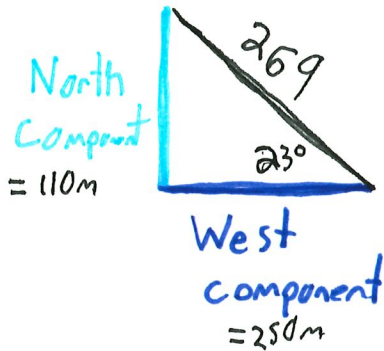 269
North
Component
= 110m
23°
West
component
= 250m